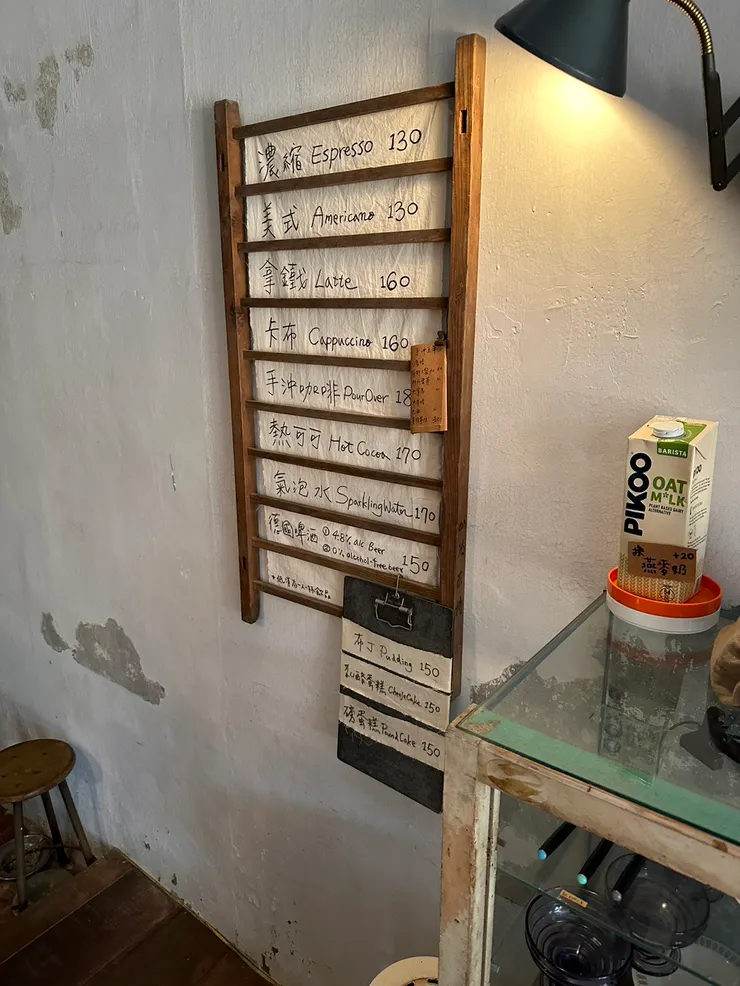 濃縮 Espresso 130
美式 Americano 130
拿鐵 Latte 160
卡布 Cappuccino 160
手沖咖啡 PourOver 18
熱可可 Hot Cocoa 170
氣泡水 Sparkling Water 170
德國啤酒 ① 4.8% alc Beer
② 0% alcohol-free beer 150
布丁 Pudding 150
乳酪蛋糕 CheeseCake 150
磅蛋糕 Pound Cake 150
BARISTA
PIKOO
OAT
M*LK
PLANT BASED DAIRY
ALTERNATIVE
換燕麥奶 +20